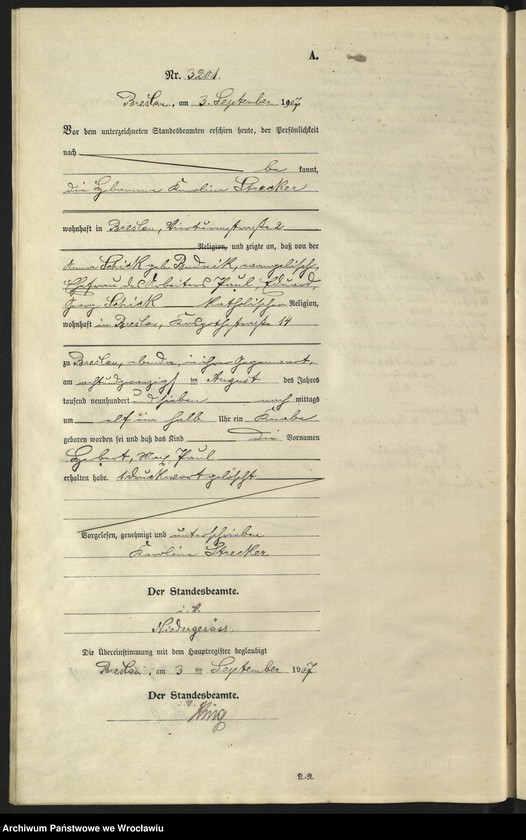 A.
Nr. 3201.
Breslau, am 3. September 1907
Vor dem unterzeichneten Standesbeamten erschien heute, der Persönlichkeit
nach
be kannt,
die Hebamme Karoline Strecker
wohnhaft in Breslau, 2
Religion, und zeigte an, daß von der
Anna Schick geb. Rudnik, evangelisch,
Ehefrau des Arbeiters Paul Eduard
Georg Schick katholischer Religion,
wohnhaft in Breslau, 14
zu Breslau, ebenda, in ihrer Gegenwart,
am achtundzwanzigst en August des Jahres
tausend neunhundert und sieben nach mittags
um elf ein halb Uhr ein Knabe
geboren worden sei und daß das Kind die Vornamen
Herbert, Max, Paul
erhalten habe. 1 Druckwort gelöscht
Vorgelesen, genehmigt und unterschrieben
Karoline Strecker
Der Standesbeamte.
i. V.
Niedergesäss.
Die Übereinstimmung mit dem Hauptregister beglaubigt
Breslau, am 3 ten September 1907
Der Standesbeamte.
i. V.
Archiwum Państwowe we Wrocławiu